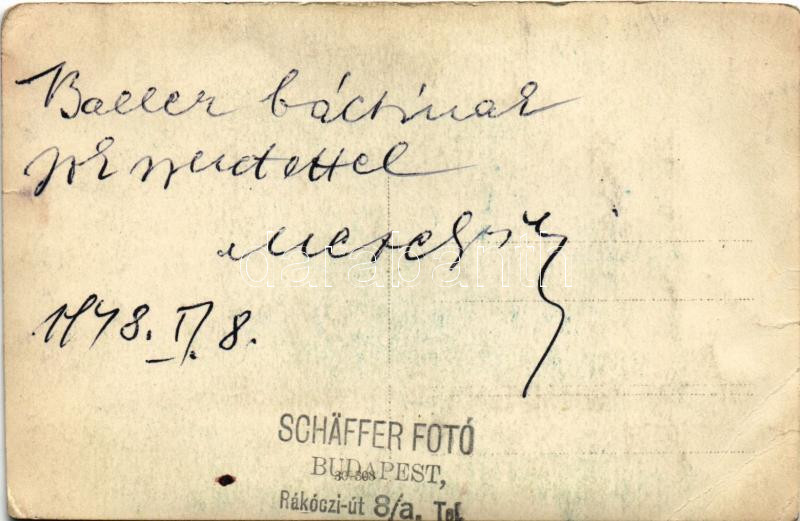 Baller bácsinak
sok szeretettel
1948. II. 8.
SCHÄFFER FOTÓ
BUDAPEST,
Rákóczi-út 8/a. Tel.
darabanth